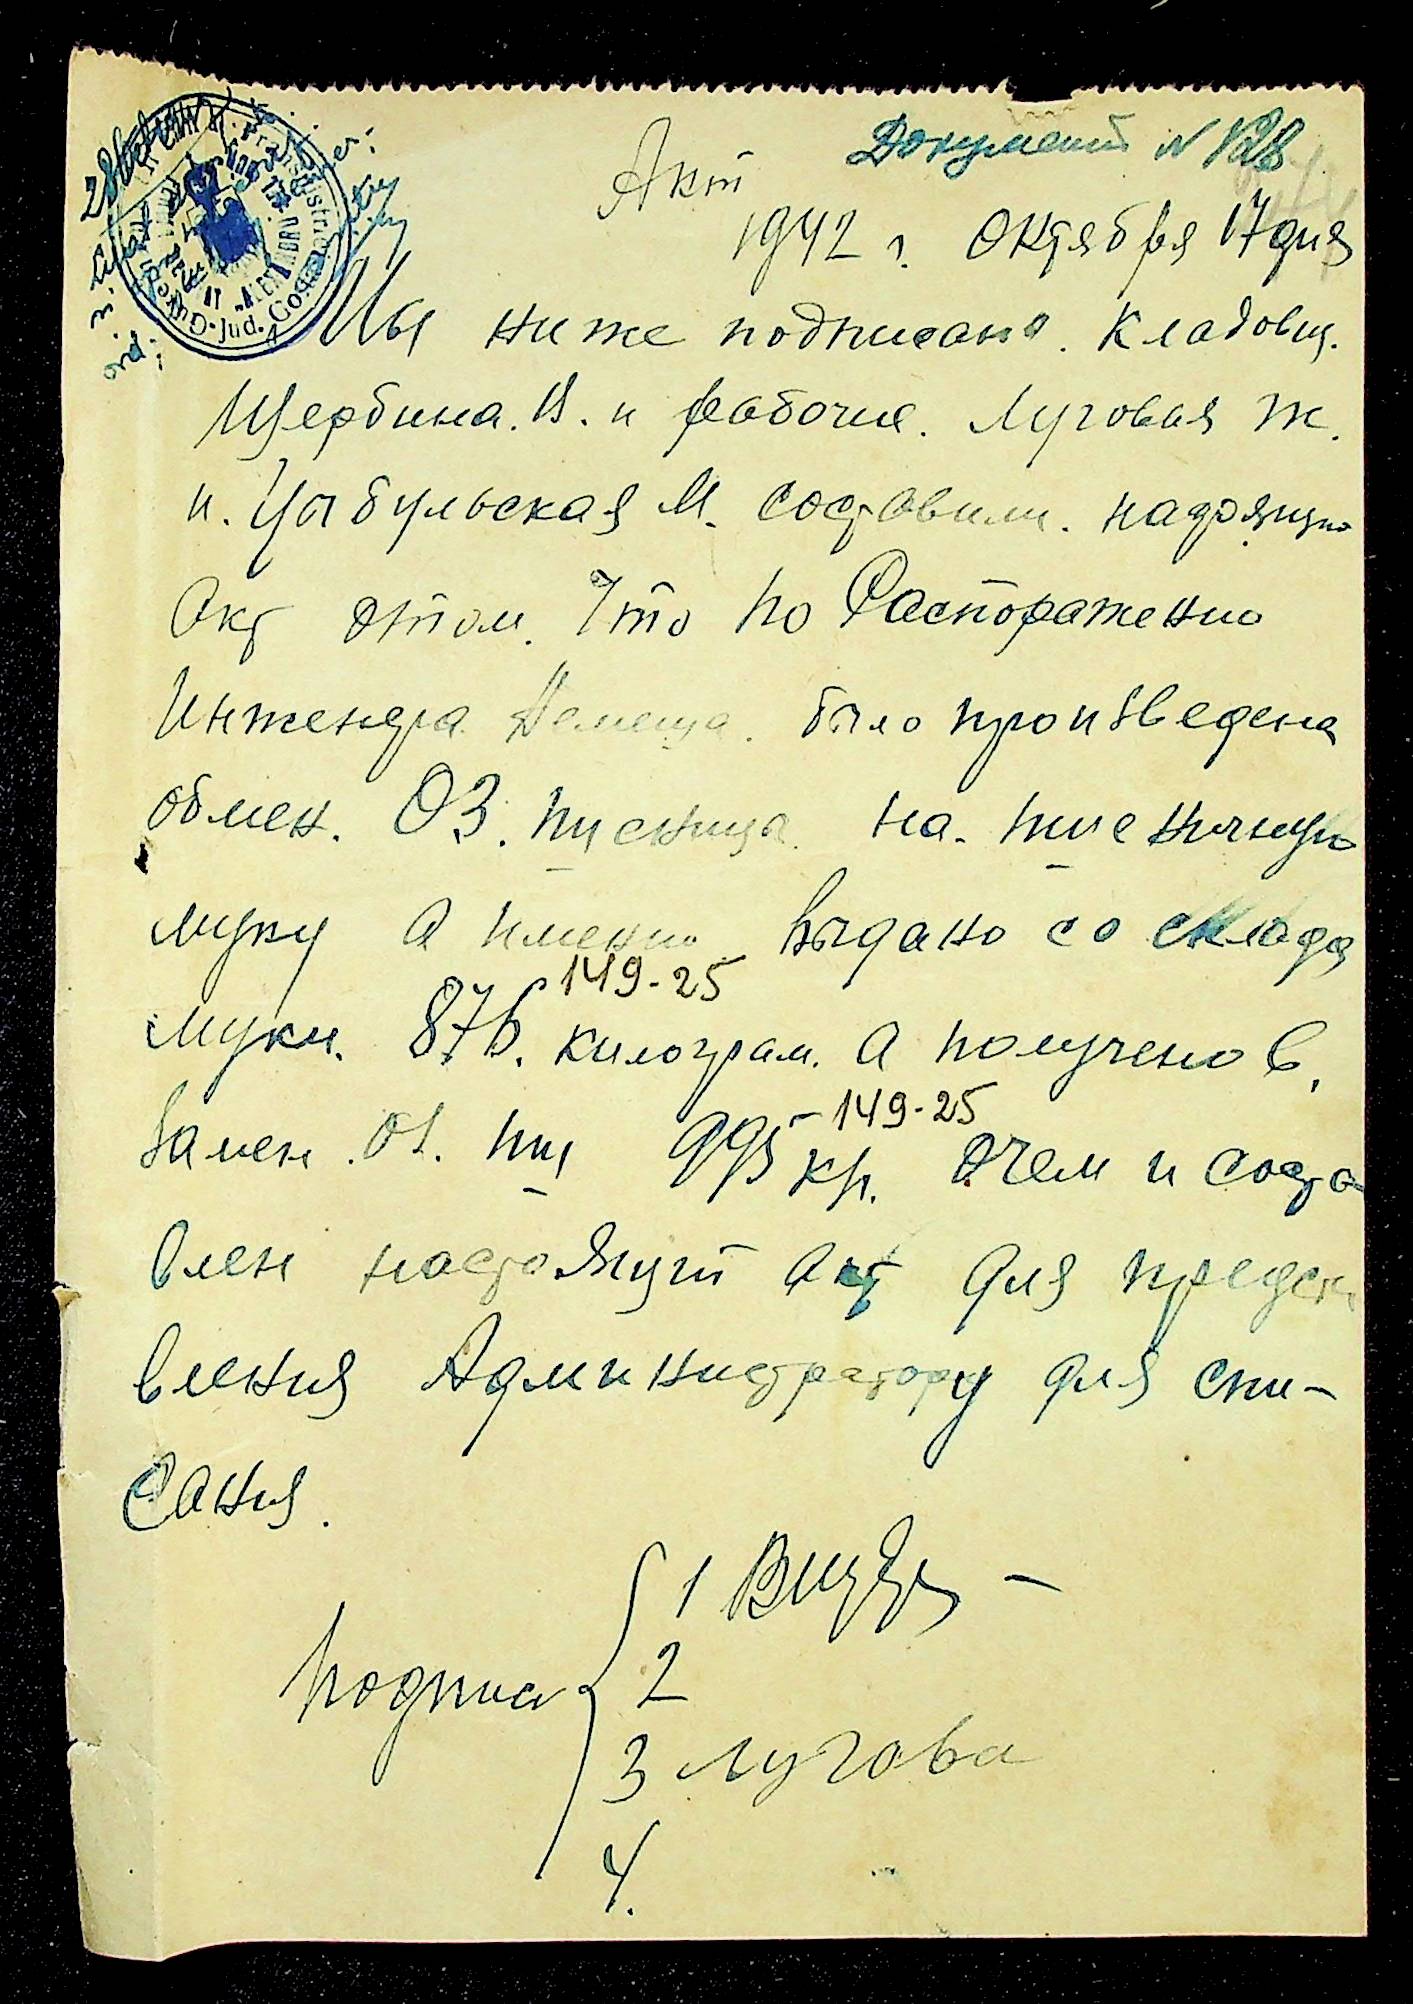 Документ N
Акт
1942 г. Октября 17 дня
Мы ниже подписано. Кладовщ.
Щербина. В. и рабочие. Луговая Ж.
и. Цыбульская М. составили. надоящию
Акт этом. Что по Распоражению
Инженера было произведена
обмен. ОЗ. пшеница. на. пшеничную
муку А именно выдано со склада
149-25
муки. 876. килограм. А получено в,
149-25
Замен. Оз. пш 995 кг. Очем и соста
влен настоящий акт для предста
вления Администратору для спи-
сания.
Подписи
1
2
3 Лугова
4.